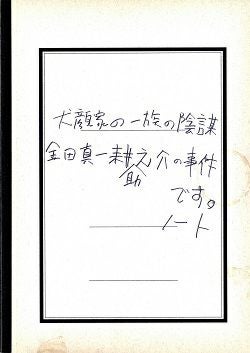 犬顔家の一族の陰謀
金田真一耕之介の事件
助
です。
ノート